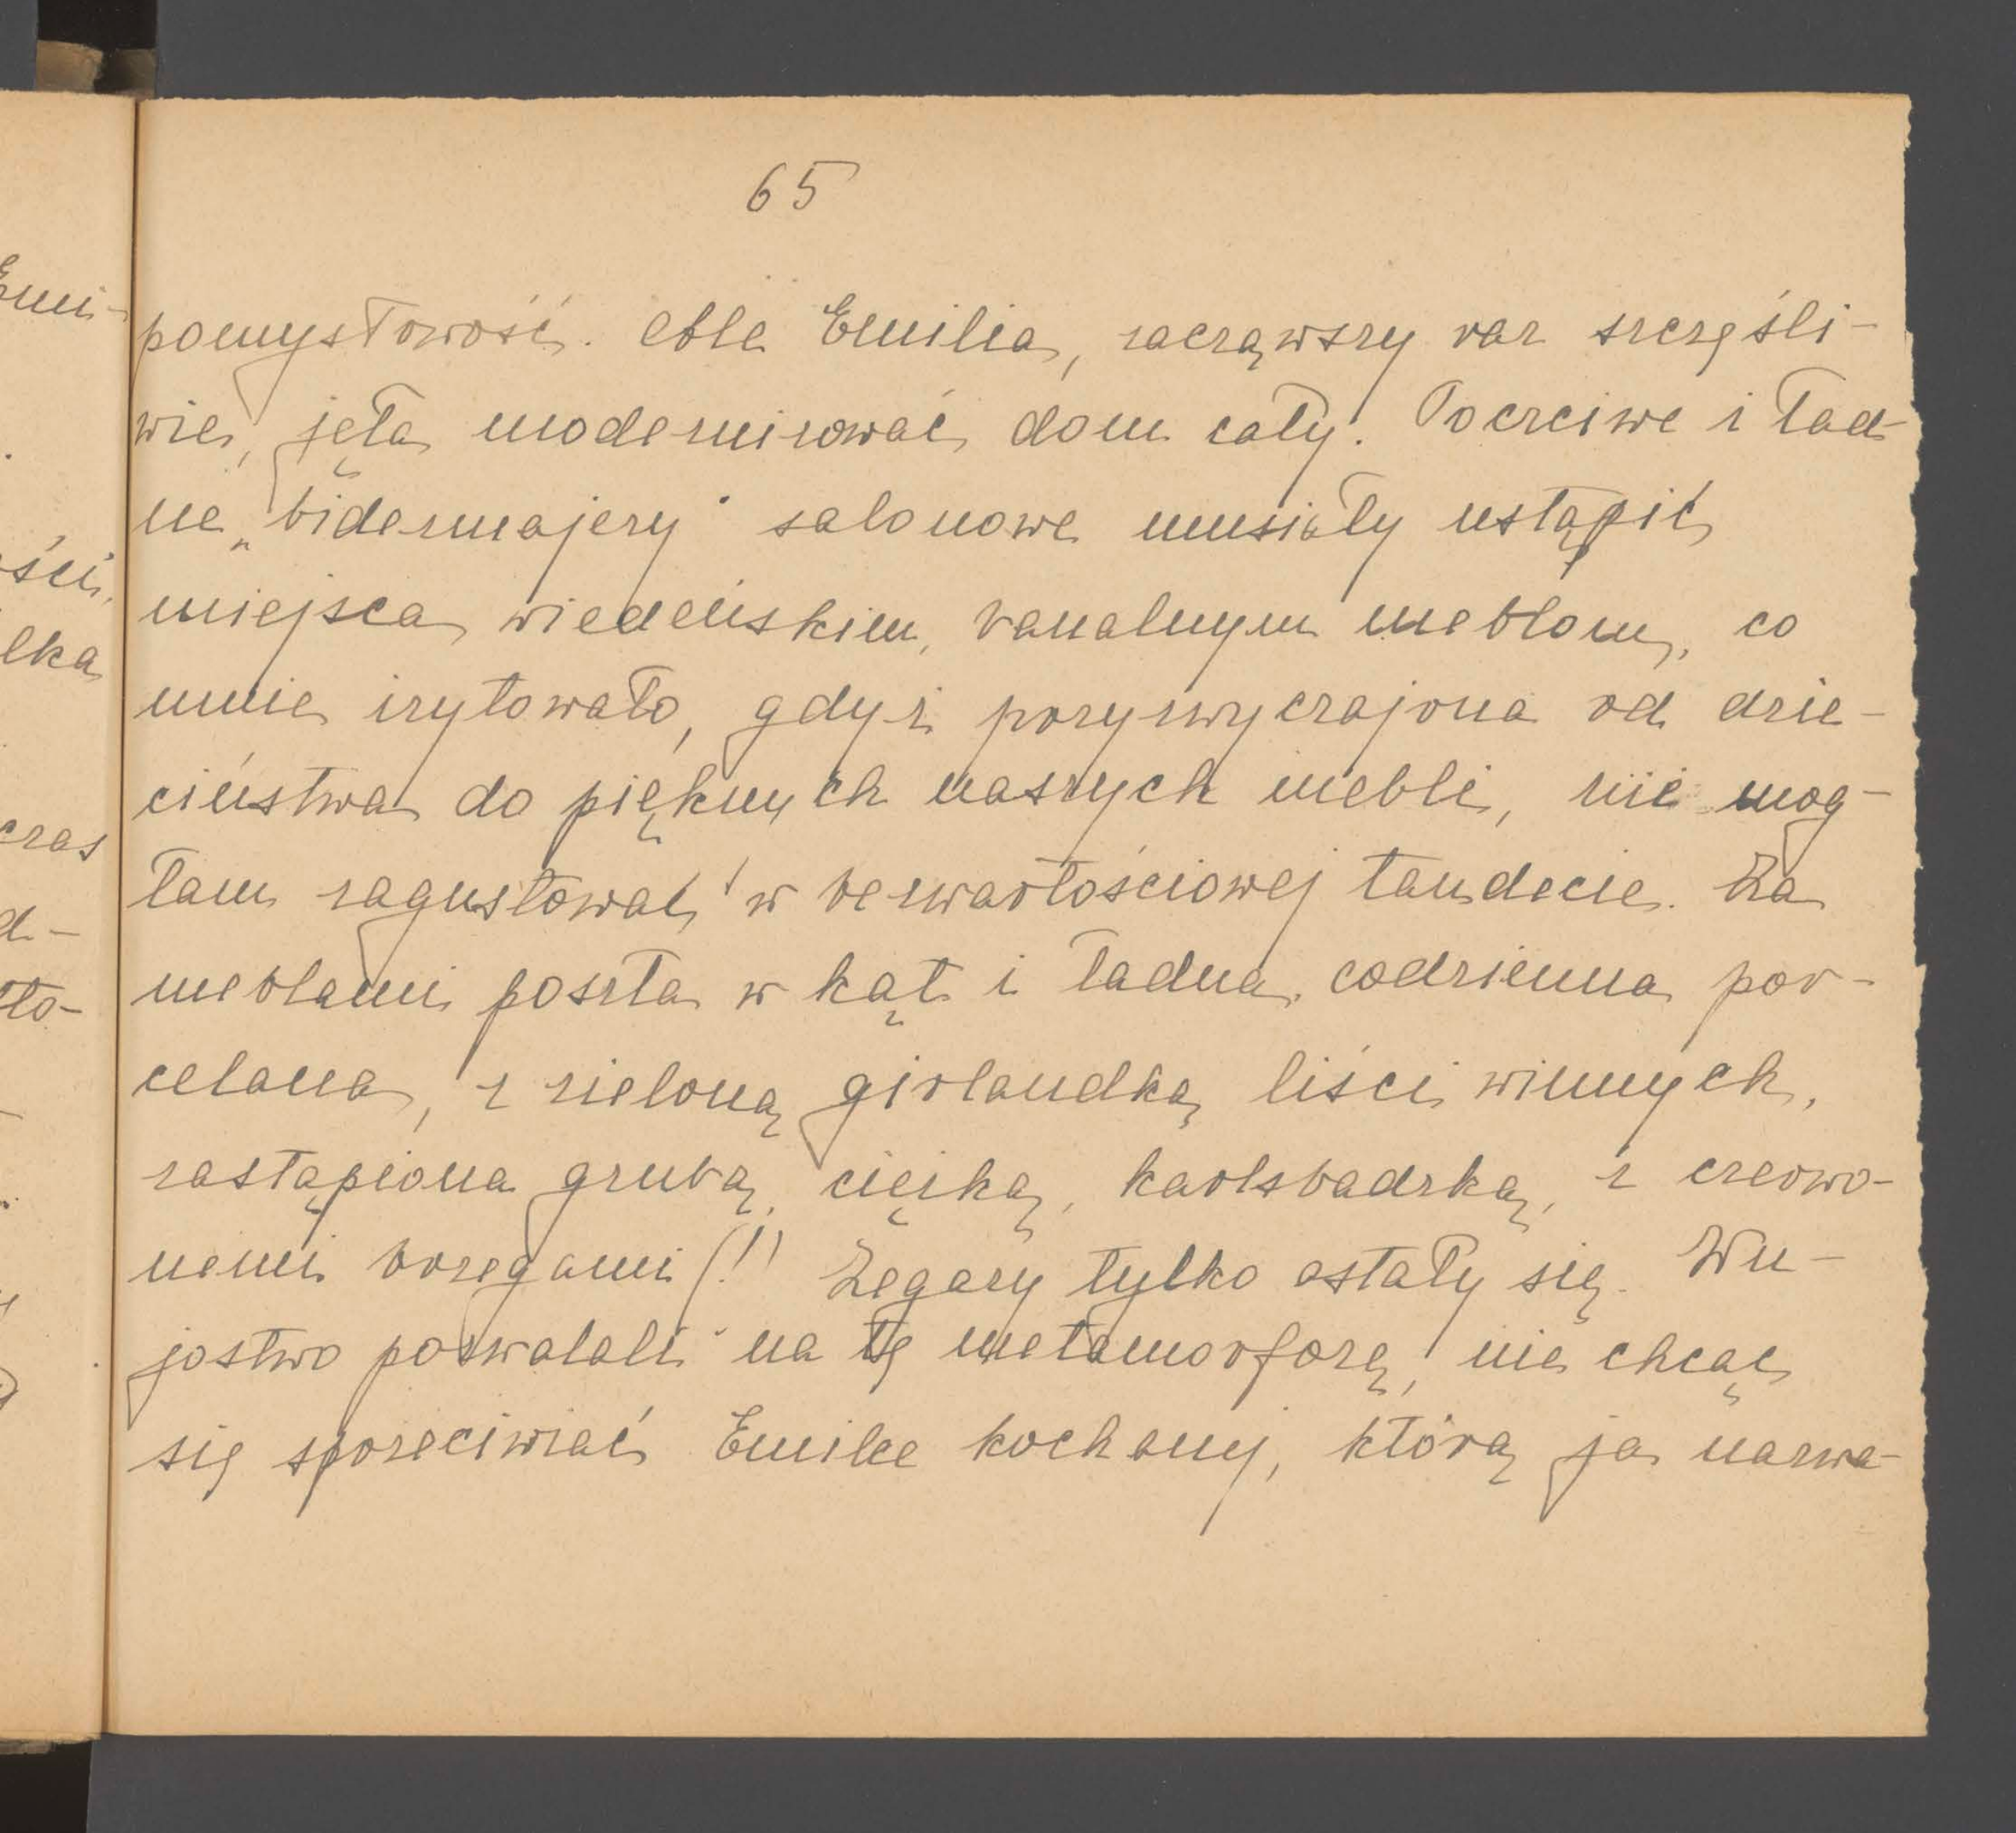 65
pomysłowość. Ale Emilia, zacząwszy raz szczęśli-
wie, jęła modernizować dom cały. Poczciwe i ład-
ne „bidermajery" salonowe musiały ustąpić
miejsca wiedeńskim, banalnym meblom, co
mnie irytowało, gdyż przyzwyczajona od dzie-
ciństwa do pięknych naszych mebli, nie mog-
łam zagustować w bezwartościowej tandecie. Za
meblami poszła w kąt i ładna, codzienna por-
celana, z zieloną girlandką liści winnych,
zastąpiona grubą, ciężką, karlsbadzką, z czerwo-
nemi brzegami (!) Zegary tylko ostały się. Wu-
jostwo pozwalali na tę metamorfozę, nie chcąc
się sprzeciwiać Emilce kochanej, którą ja nazwa-
Emi-
ści,
łka
czas
d-
to-